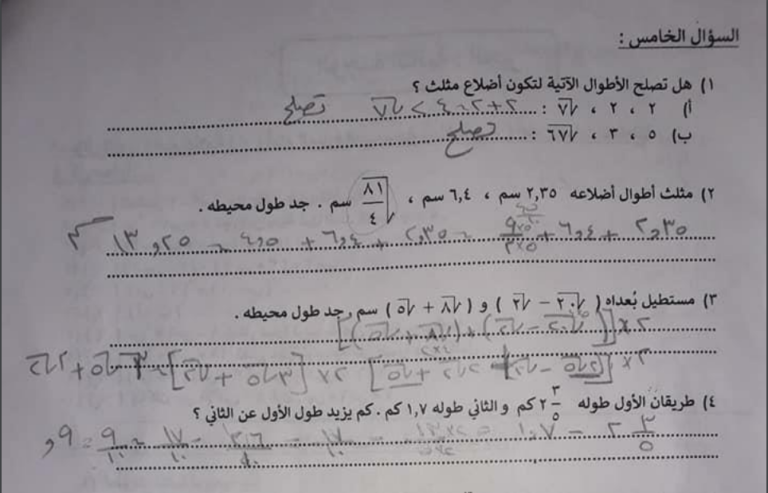 السؤال الخامس :
١) هل تصلح الأطوال الآتية لتكون أضلاع مثلث ؟
أ) ٢ ، ٢ ، √٧ : ٢+٢=٤ > √٧ تصلح
ب) ٥ ، ٣ ، √٦٧ : تصلح
٢) مثلث أطوال أضلاعه ٢,٣٥ سم ، ٦,٤ سم ، √(٨١/٤) سم . جد طول محيطه .
٢,٣٥ + ٦,٤ + ٩×٥/٢×٥ = ٢,٣٥ + ٦,٤ + ٤,٥ = ١٣,٢٥
٣) مستطيل بُعداه ( √٢٠ − √٢ ) و ( √٨ + √٥ ) سم , جد طول محيطه .
٢×[(√٢٠ − √٢)+(√٨ + √٥)]
٢×[٢√٥ − √٢ + ٢√٢ + √٥] ٢×[٣√٥ + √٢]
٤) طريقان الأول طوله ٢ ٣/٥ كم و الثاني طوله ١,٧ كم . كم يزيد طول الأول عن الثاني ؟
٢ ٣/٥ − ١.٧ = − ١٧/١٠ = ٩/١٠ = ,٩